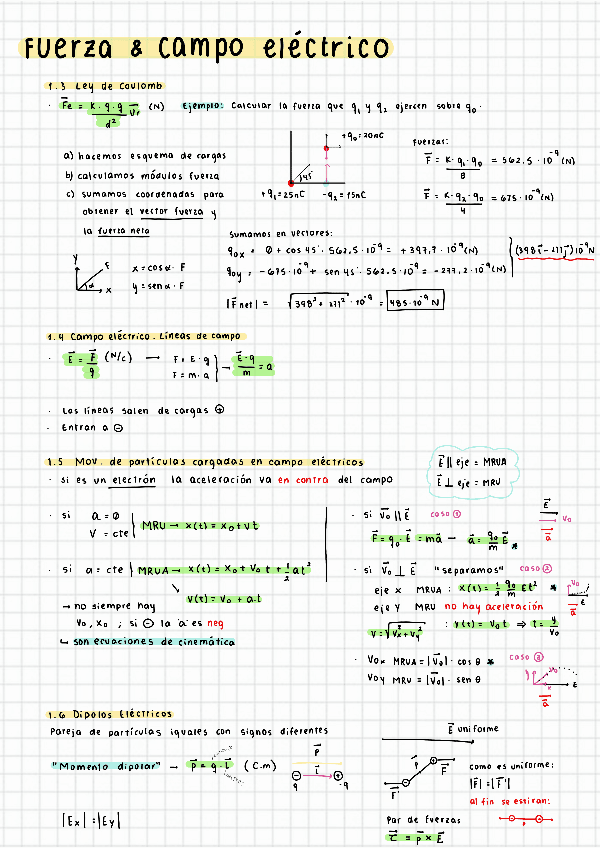 Fuerza & campo eléctrico
1.3 Ley de Coulomb
· Fe = K·q·q / d² Vr (N)
Ejemplo: Calcular la fuerza que q₁ y q₂ ejercen sobre q₀.
a) hacemos esquema de cargas
b) calculamos módulos fuerza
c) sumamos coordenadas para
obtener el vector fuerza y
la fuerza neta
+q₀ = 20nC
45°
+q₁ = 25nC
-q₂ = 15nC
Fuerzas:
F = K·q₁·q₀ / 8 = 562,5 · 10⁻⁹ (N)
F = K·q₂·q₀ / 4 = 675 · 10⁻⁹ (N)
Sumamos en vectores:
q₀x = 0 + cos 45° · 562,5 · 10⁻⁹ = +397,7 · 10⁻⁹ (N)
q₀y = -675·10⁻⁹ + sen 45° · 562,5 · 10⁻⁹ = -277,2 · 10⁻⁹ (N)
y
F
α
x
x = cos α · F
y = sen α · F
|F net| = √398² + 277² · 10⁻⁹ = 485·10⁻⁹ N
1.4 Campo eléctrico. Líneas de campo
· E = F / q (N/c) → F = E·q
F = m·a
→ E·q / m = a
· Las líneas salen de cargas ⊕
· Entran a ⊖
1.5 Mov. de partículas cargadas en campo eléctricos
E ∥ eje = MRUA
E ⊥ eje = MRU
· si es un electrón la aceleración va en contra del campo
· si a = 0
V = cte
MRU → x(t) = x₀ + vt
· si a = cte MRUA → x(t) = x₀ + V₀ t + 1/2 at²
V(t) = V₀ + a·t
→ no siempre hay
V₀, x₀ ; si ⊖ la 'a' es neg
↳ son ecuaciones de cinemática
· si V₀ ∥ E caso ①
F = q₀·E = ma → a = q₀/m E *
E
V₀
a
· si V₀ ⊥ E "separamos" caso ②
eje x MRUA : x(t) = 1/2 q₀/m Et² *
eje y MRU no hay aceleración
V = √Vx² + Vy² : y(t) = V₀ t ⇒ t = y/V₀
V₀
E
a
· V₀x MRUA = |V₀| · cos θ * caso ③
V₀y MRU = |V₀| · sen θ
E
a
1.6 Dipolos Eléctricos
Pareja de partículas iguales con signos diferentes
"Momento dipolar" → p = q·l (C·m)
p
l
q
-q
|Ex| = |Ey|
E uniforme
p
F
F
como es uniforme:
|F| = |F'|
al fin se estiran:
p
Par de fuerzas
τ = p × E